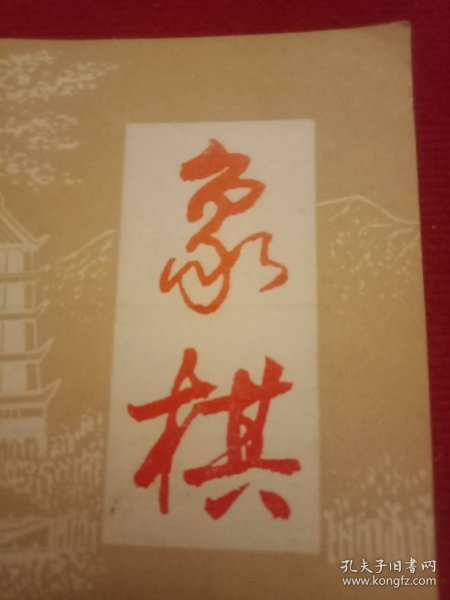 象棋
孔夫子旧书网
www.kongfz.com